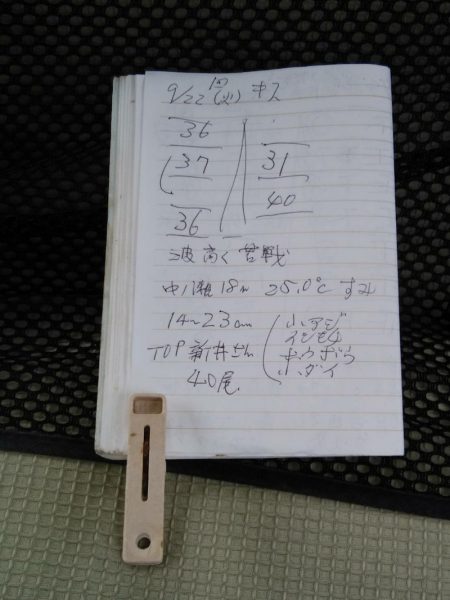 9/22 (火) キス
36
37 31
36 40
波高く苦戦
中ノ瀬 18m 25.0℃ すみ
14~23cm
TOP 新井さん
40尾
小アジ
イシモチ
ホウボウ
小ダイ